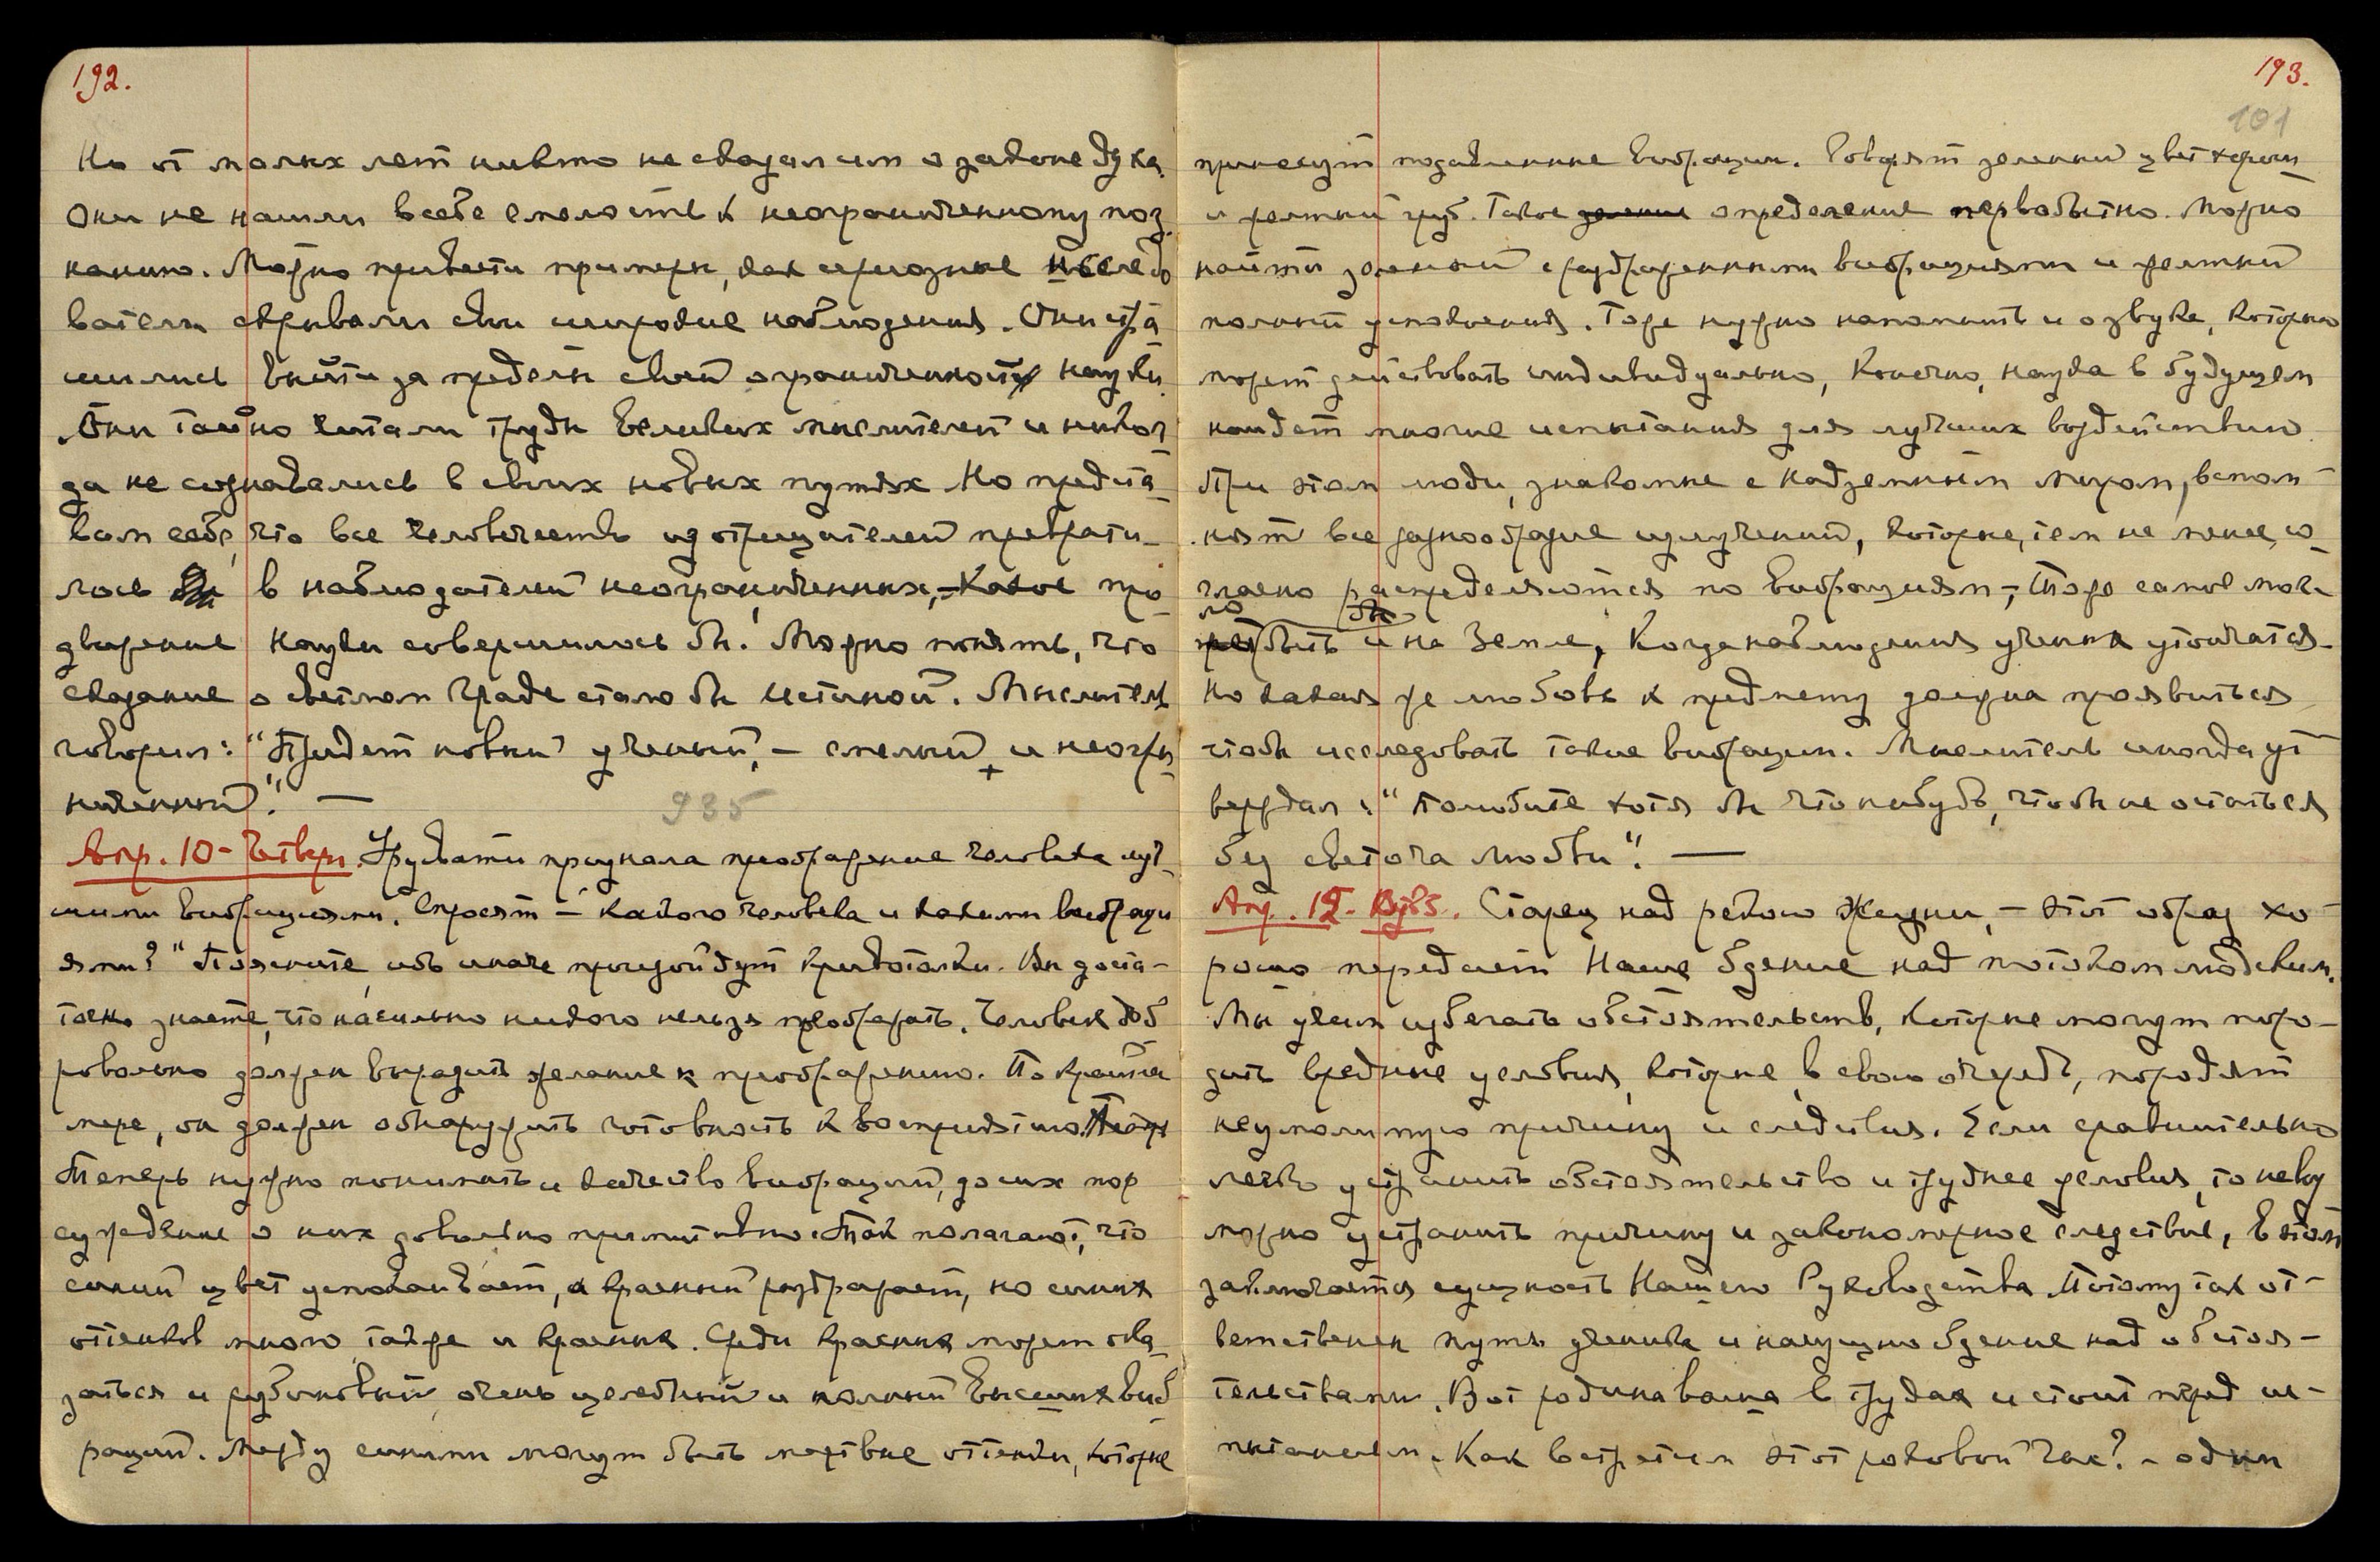 192.
Но от малых лет никто не сказал им о законе духа.
Они не нашли в себе смелость к неограниченному поз-
нанию. Можно привести примеры, как серьозные исследо
ватели скрывали свои широкие наблюдения. Они стра-
шились выйти за пределы своей ограниченности науки.
Они тайно читали труды великих мыслителей и никог-
да не сознавались в своих новых путях Но предста-
вим себе, что все человечество из отрицателей превратил-
лось в наблюдателей неограниченных, – Какое про-
движение науки совершилось бы! Можно понять, что
сказание о светлом Граде стало бы Истиной. Мыслитель
говорил: "Придет новый ученый, – смелый и неогра-
ниченный". —
935
Апр. 10 – Четверг. Урусвати признала преображение человека луч-
шими вибрациями. Спросят – какого человека и какими вибраци
ями? "Поясните, ибо иначе произойдут кривотолки. Вы доста-
точно знаете, что насильно никого нельзя преображать. Человек доб
ровольно должен выразить желание к преображению. По крайней
мере, он должен обнаружить готовность к восприятию.
Теперь нужно понимать и качество вибраций, до сих пор
суждение о них довольно примитивно. Так полагают, что
синий цвет успокаивает, а красный раздражает, но синих
оттенков много, также и красных. Среди красных может ока-
заться и рубиновый, очень целебный и полный высших виб-
раций. Между синими могут быть мертвые оттенки, которые
193.
101
принесут подавленные вибрации. Говорят зеленый цвет хорош
и желтый груб. Такое деление определение первобытно. Можно
найти зеленый с раздраженными вибрациями и желтый
полный успокоения. Тоже нужно напомнить и о звуке, который
может действовать индивидуально, Конечно, наука в будущем
найдет многие испытания для лучших воздействий.
При этом люди, знакомые с Надземным Миром, вспом-
нят все разнообразие излучений, которые, тем не менее, со-
гласно распределяются по вибрациям, – Тоже самое мог-
ло бы быть и на Земле, Когда наблюдения ученых утончатся.
Но какая же любовь к предмету должна проявиться
чтобы исследовать такие вибрации. Мыслитель иногда ут-
верждал: "Полюбите хотя бы что нибудь, чтобы не остаться
без светоча Любви". —
Апр. 12. Суб. Старец над рекою Жизни, – этот образ хо-
рошо передает Наше бдение над потоком людским.
Мы учим избегать обстоятельств, которые могут поро-
дить вредные условия, которые, в свою очередь, породят
неумолимую причину и следствия. Если сравнительно
легко устранить обстоятельство и труднее условия, то невоз
можно устранить причину и закономерное следствие, В этом
заключается сущность Нашего Руководства. Потому так от-
ветственен путь ученика и насущно бдение над обстоя-
тельствами. Вот родина ваша в трудах и стоит перед ис-
пытанием. Как встретим этот роковой час? – одни